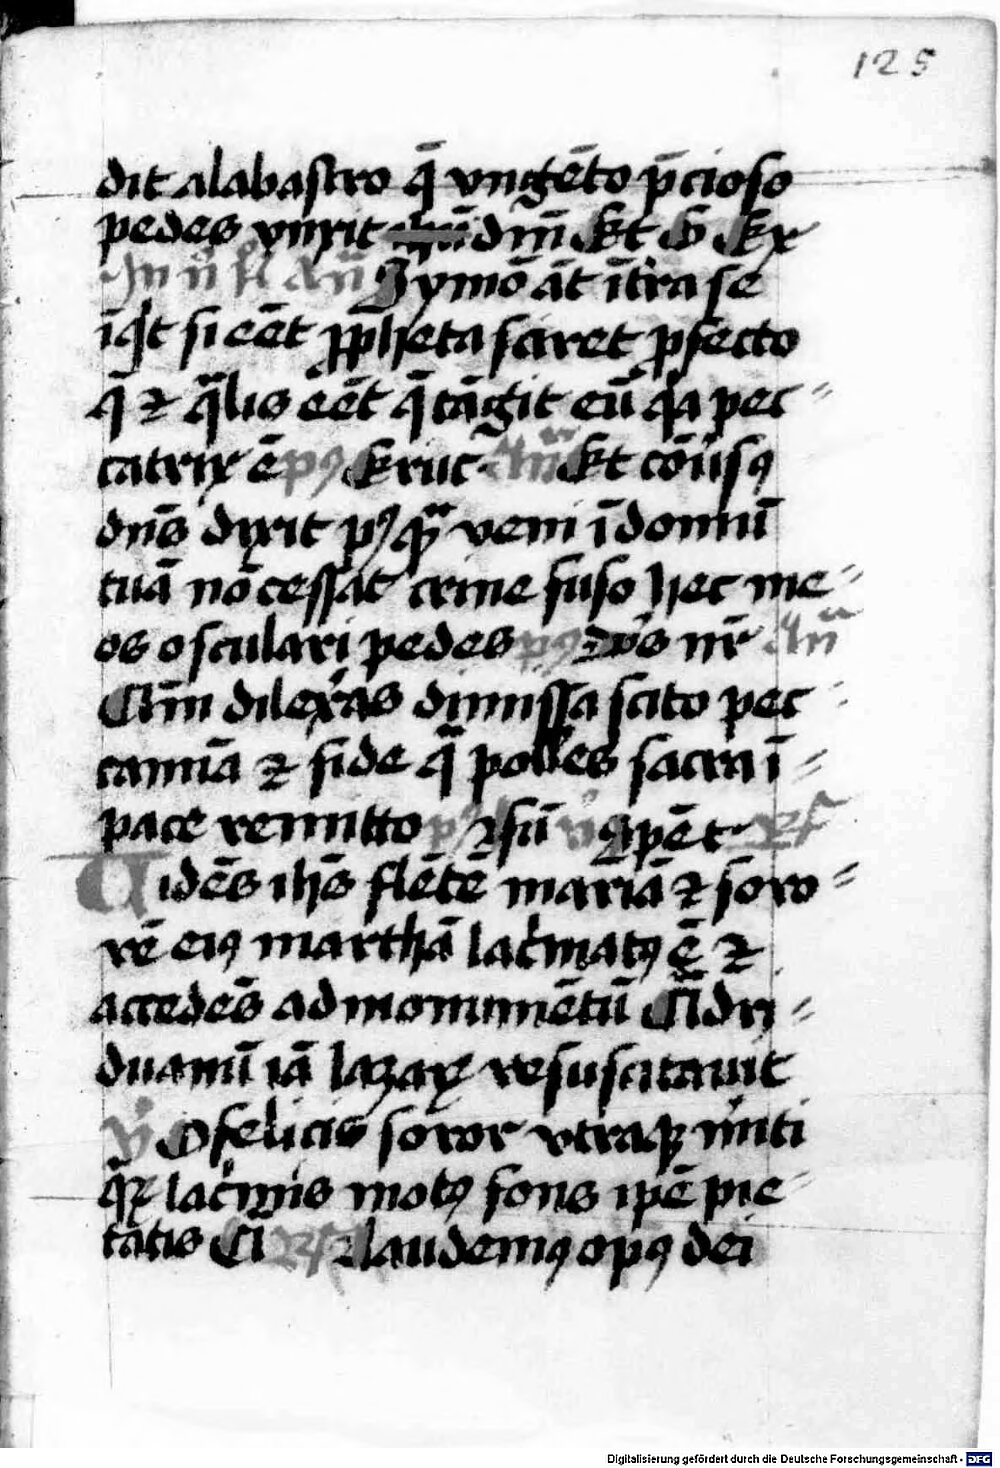 125
dit alabastro q̄ vngēto p̄cioso
pedes vnxit dm̄ Et Ev
Jn Symō āt īt̄ra se
īq̇t si eēt ꝓpheta sciret ꝓfecto
q̄ ⁊ q̄lis eēt q̄ tāgit eū q̇a pec⸗
catrix ē p̄s An̄ Et cōūsꝯ
dn̄s dixit veni ī domū
tuā nō cessāt crine fuso hec me⸗
os osculari pedes p̄s nr̄ An̄
Cū dilexīas dimissa scito pec⸗
camīa ⁊ fide q̄ polles sacra ī⸗
pace remitto
Uidēs ihs̄ flētē mariā ⁊ soro⸗
rē eiꝯ marthā lac̄matꝯ ē ⁊
accedēs ad monumētū q̄dri⸗
duanū iā lazaꝝ resuscitauit
v̊ O felicis soror vtraqꝫ
q̄ꝝ lac̄mis motꝯ fons ip̄e pie⸗
tatis Q̄ laudemꝯ opꝯ dei
Digitalisierung gefördert durch die Deutsche Forschungsgemeinschaft - DFG